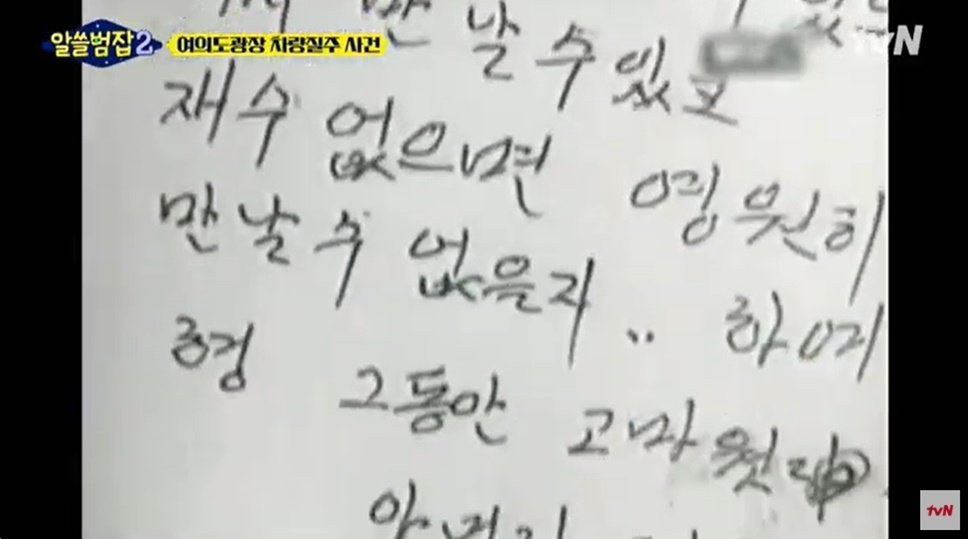 알쓸범잡2 여의도광장 차량질주 사건
tvN
만날 수 있고
재수 없으면 영원히
만날 수 없을지.. 하여
형 그동안 고마웠
tvN